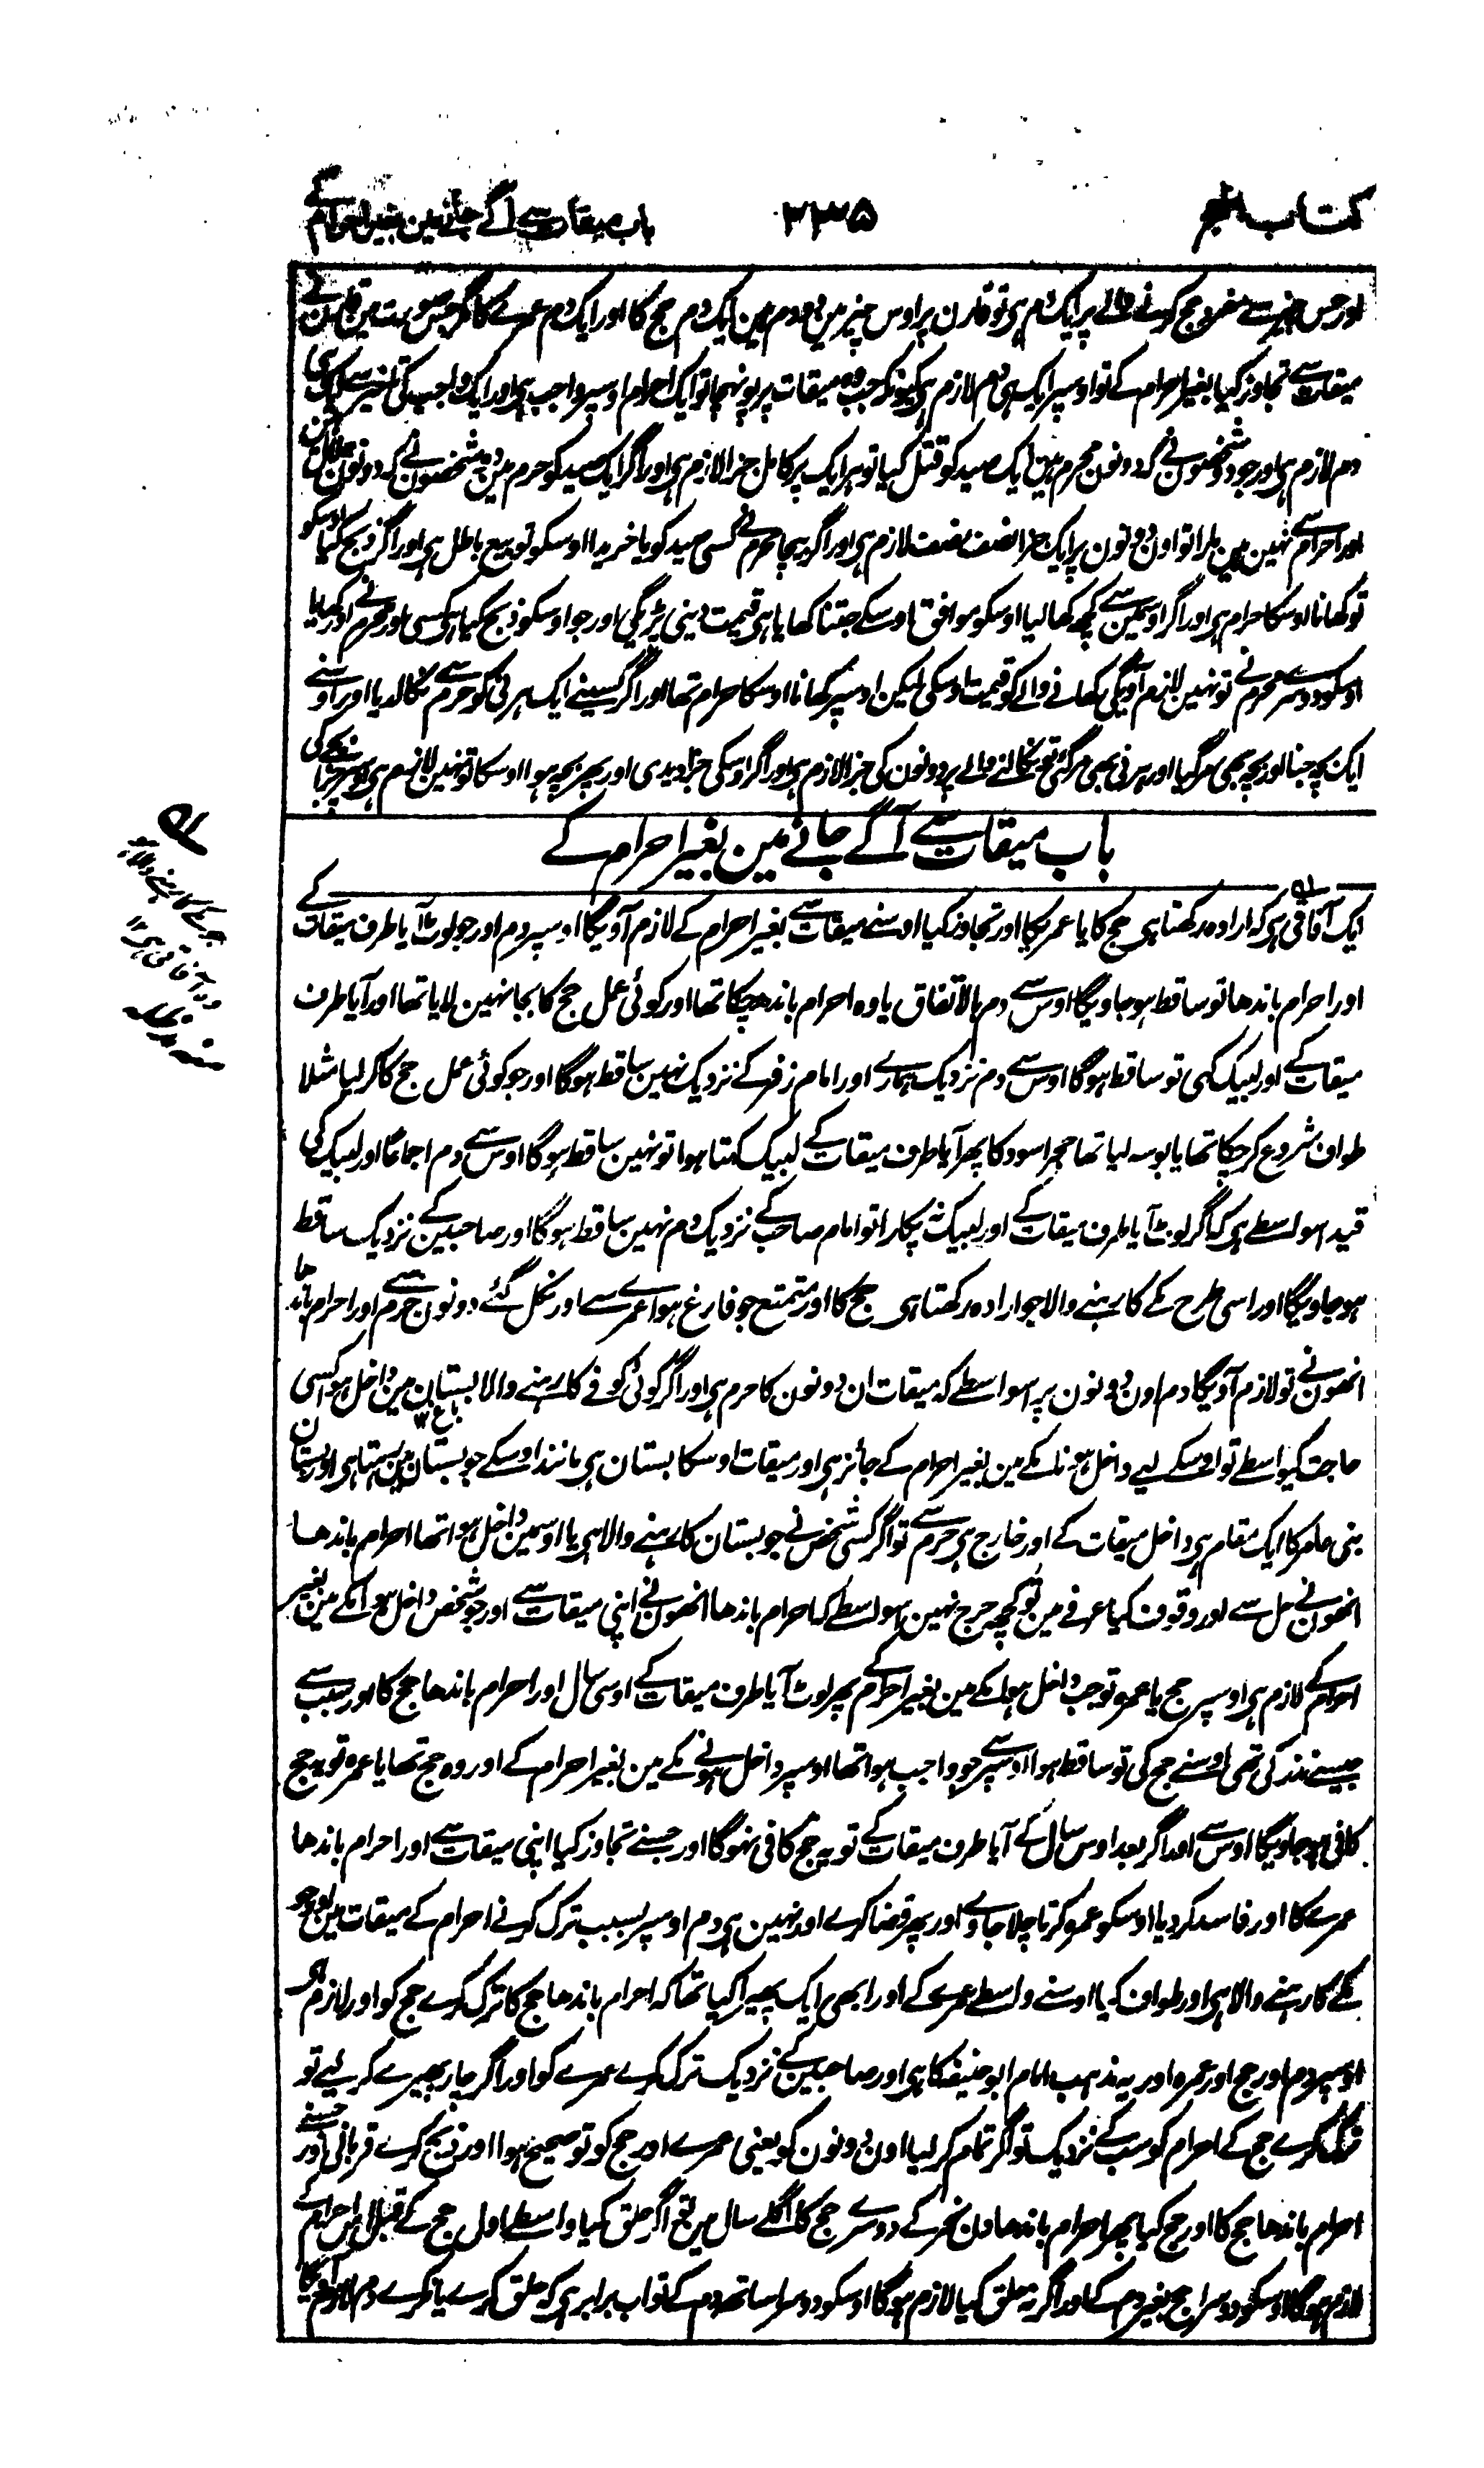 کتاب الحج
۲۳۵
باب میقات سے آگے جانے مین بغیر احرام کے
اور جس چیز سے مفرد حج کرنے والے پر ایک دم ہی تو قارن پر اوس چیز مین دو دم ہین ایک دم حج کا اور ایک دم عمرے کا مگر جس صورت مین قارن نے
میقات سے تجاوز کیا بغیر احرام کے تو اوسپر ایک ہی دم لازم ہی کیونکہ جب وہ میقات پر پونہچا تو ایک احرام اوسپر واجب ہی اور ایک واجب کی تاخیر سے ایک ہی
دم لازم ہی اور جو دو شخصون نے کہ دونون محرم ہین ایک صید کو قتل کیا تو ہر ایک پر کامل جزا لازم ہی اور اگر ایک صید کو حرم مین دو شخصون نے کہ دونون حلال ہین
اور احرام سے نہین ہین مارا تو اون دونون پر ایک جزا نصف نصف لازم ہی اور اگر بیچا محرم نے کسی صید کو یا خریدا اوسکو تو بیع باطل ہی اور اگر ذبح کیا اوسکو
تو کھانا اوسکا حرام ہی اور اگر اوسمین سے کچھ کھا لیا اوسکو موافق اوسکے جتنا کھایا ہی قیمت دینی پڑیگی اور جو اوسکو ذبح کیا ہی کسی اور محرم نے اور کھایا
اوسکو دوسرے محرم نے تو نہین لازم آویگی کھانے والے کو قیمت اوسکی لیکن اوسپر کھانا اوسکا حرام تھا اور اگر کسینے ایک ہرنی کو حرم سے نکالدیا اور اوسنے
ایک بچہ جنا اور بچہ بھی مر گیا اور ہرنی بھی مر گئی تو نکالنے والے پر دونون کی جزا لازم ہی اور اگر اوسکی جزا دیدی اور پھر بچہ ہوا اوسکا تو نہین لازم ہی اوسپر جزا بچے کی
باب میقات سے آگے جانے مین بغیر احرام کے
ایک آفاقی ہی کہ ارادہ رکھتا ہی حج کا یا عمریکا اور تجاوز کیا اوسنے میقات سے بغیر احرام کے لازم آویگا اوسپر دم اور جو لوٹ آیا طرف میقات کے
اور احرام باندھا تو ساقط ہو جاویگا اوس سے دم بالاتفاق یا وہ احرام باندھ چکا تھا اور کوئی عمل حج کا بجا نہین لایا تھا اور آیا طرف
میقات کے اور لبیک کہی تو ساقط ہوگا اوس سے دم نزدیک ہمارے اور امام زفر کے نزدیک نہین ساقط ہوگا اور جو کوئی عمل حج کا کر لیا مثلا
طواف شروع کر چکا تھا یا بوسہ لیا تھا حجر اسود کا پھر آیا طرف میقات کے لبیک کہتا ہوا تو نہین ساقط ہوگا اوس سے دم اجماعا اور لبیک کی
قید اسواسطے ہی کہ اگر لوٹ آیا طرف میقات کے اور لبیک نہ پکارا تو امام صاحب کے نزدیک دم نہین ساقط ہوگا اور صاحبین کے نزدیک ساقط
ہو جاویگا اور اسی طرح مکے کا رہنے والا جو ارادہ رکھتا ہی حج کا اور متمتع جو فارغ ہوا عمرے سے اور نکل گئے دونون حرم سے اور احرام باندھا
انھون نے تو لازم آویگا دم اون دونون پر اسواسطے کہ میقات ان دونون کا حرم ہی اور اگر کوئی کوفے کا رہنے والا بستان مین داخل ہوا کسی
حاجت کیواسطے تو اوسکے لیے داخل ہونا مکے مین بغیر احرام کے جائز ہی اور میقات اوسکا بستان ہی مانند اوسکے جو بستان مین رہتا ہی اور بستان
بنی عامر کا ایک مقام ہی داخل میقات کے اور خارج ہی حرم سے تو اگر کسی شخص نے جو بستان کا رہنے والا ہی یا اوسمین داخل ہوا تھا احرام باندھا
انھون نے حل سے اور وقوف کیا عرفے مین تو کچھ حرج نہین اسواسطے کہ احرام باندھا انھون نے اپنی میقات سے اور جو شخص داخل ہوا مکے مین بغیر
احرام کے لازم ہی اوسپر حج یا عمرہ تو جب داخل ہوا مکے مین بغیر احرام کے پھر لوٹ آیا طرف میقات کے اوسی سال اور احرام باندھا حج کا اور سبب سے
جیسے نذر کی تھی اوسنے حج کی تو ساقط ہوا اوس سے جو واجب ہوا تھا اوسپر داخل ہونے مکے مین بغیر احرام کے اور وہ حج تھا یا عمرہ تو یہ حج
کافی ہو جاویگا اوس سے اور اگر بعد اوس سال کے آیا طرف میقات کے تو یہ حج کافی نہوگا اور جسنے تجاوز کیا اپنی میقات سے اور احرام باندھا
عمرے کا اور فاسد کر دیا اوسکو عمرہ کرتا چلا جاوے اور پھر قضا کرے اور نہین ہی دم اوسپر بسبب ترک کرنے احرام کے میقات مین اور جو
مکے کا رہنے والا ہی اور طواف کیا اوسنے واسطے عمرے کے اور ابھی ایک پھیرا کیا تھا کہ احرام باندھا حج کا ترک کرے حج کو اور لازم ہی
اوسپر دم اور حج اور عمرہ اور یہ مذہب امام ابو حنیفہ کا ہی اور صاحبین کے نزدیک ترک کرے عمرے کو اور اگر چار پھیرے کر لیے تو
ترک کرے حج کے احرام کو سب کے نزدیک تو اگر تمام کر لیا اون دونون کو یعنی عمرے اور حج کو تو صحیح ہوا اور ذبح کرے قربانی اور جسنے
احرام باندھا حج کا اور حج کیا پھر احرام باندھا دن نحر کے دوسرے حج کا اگلے سال مین تو اگر حلق کیا واسطے اول حج کے قبل اس احرام کے
لازم ہوگا اوسکو دوسرا حج بغیر دم کے اور اگر نہ حلق کیا لازم ہوگا اوسکو دوسرا ساتھ دم کے تو اب برابر ہی کہ حلق کرے یا نکرے دم لازم آویگا
جو مکے کا رہنے والا نہو
وہ آفاقی ہی ۱۲